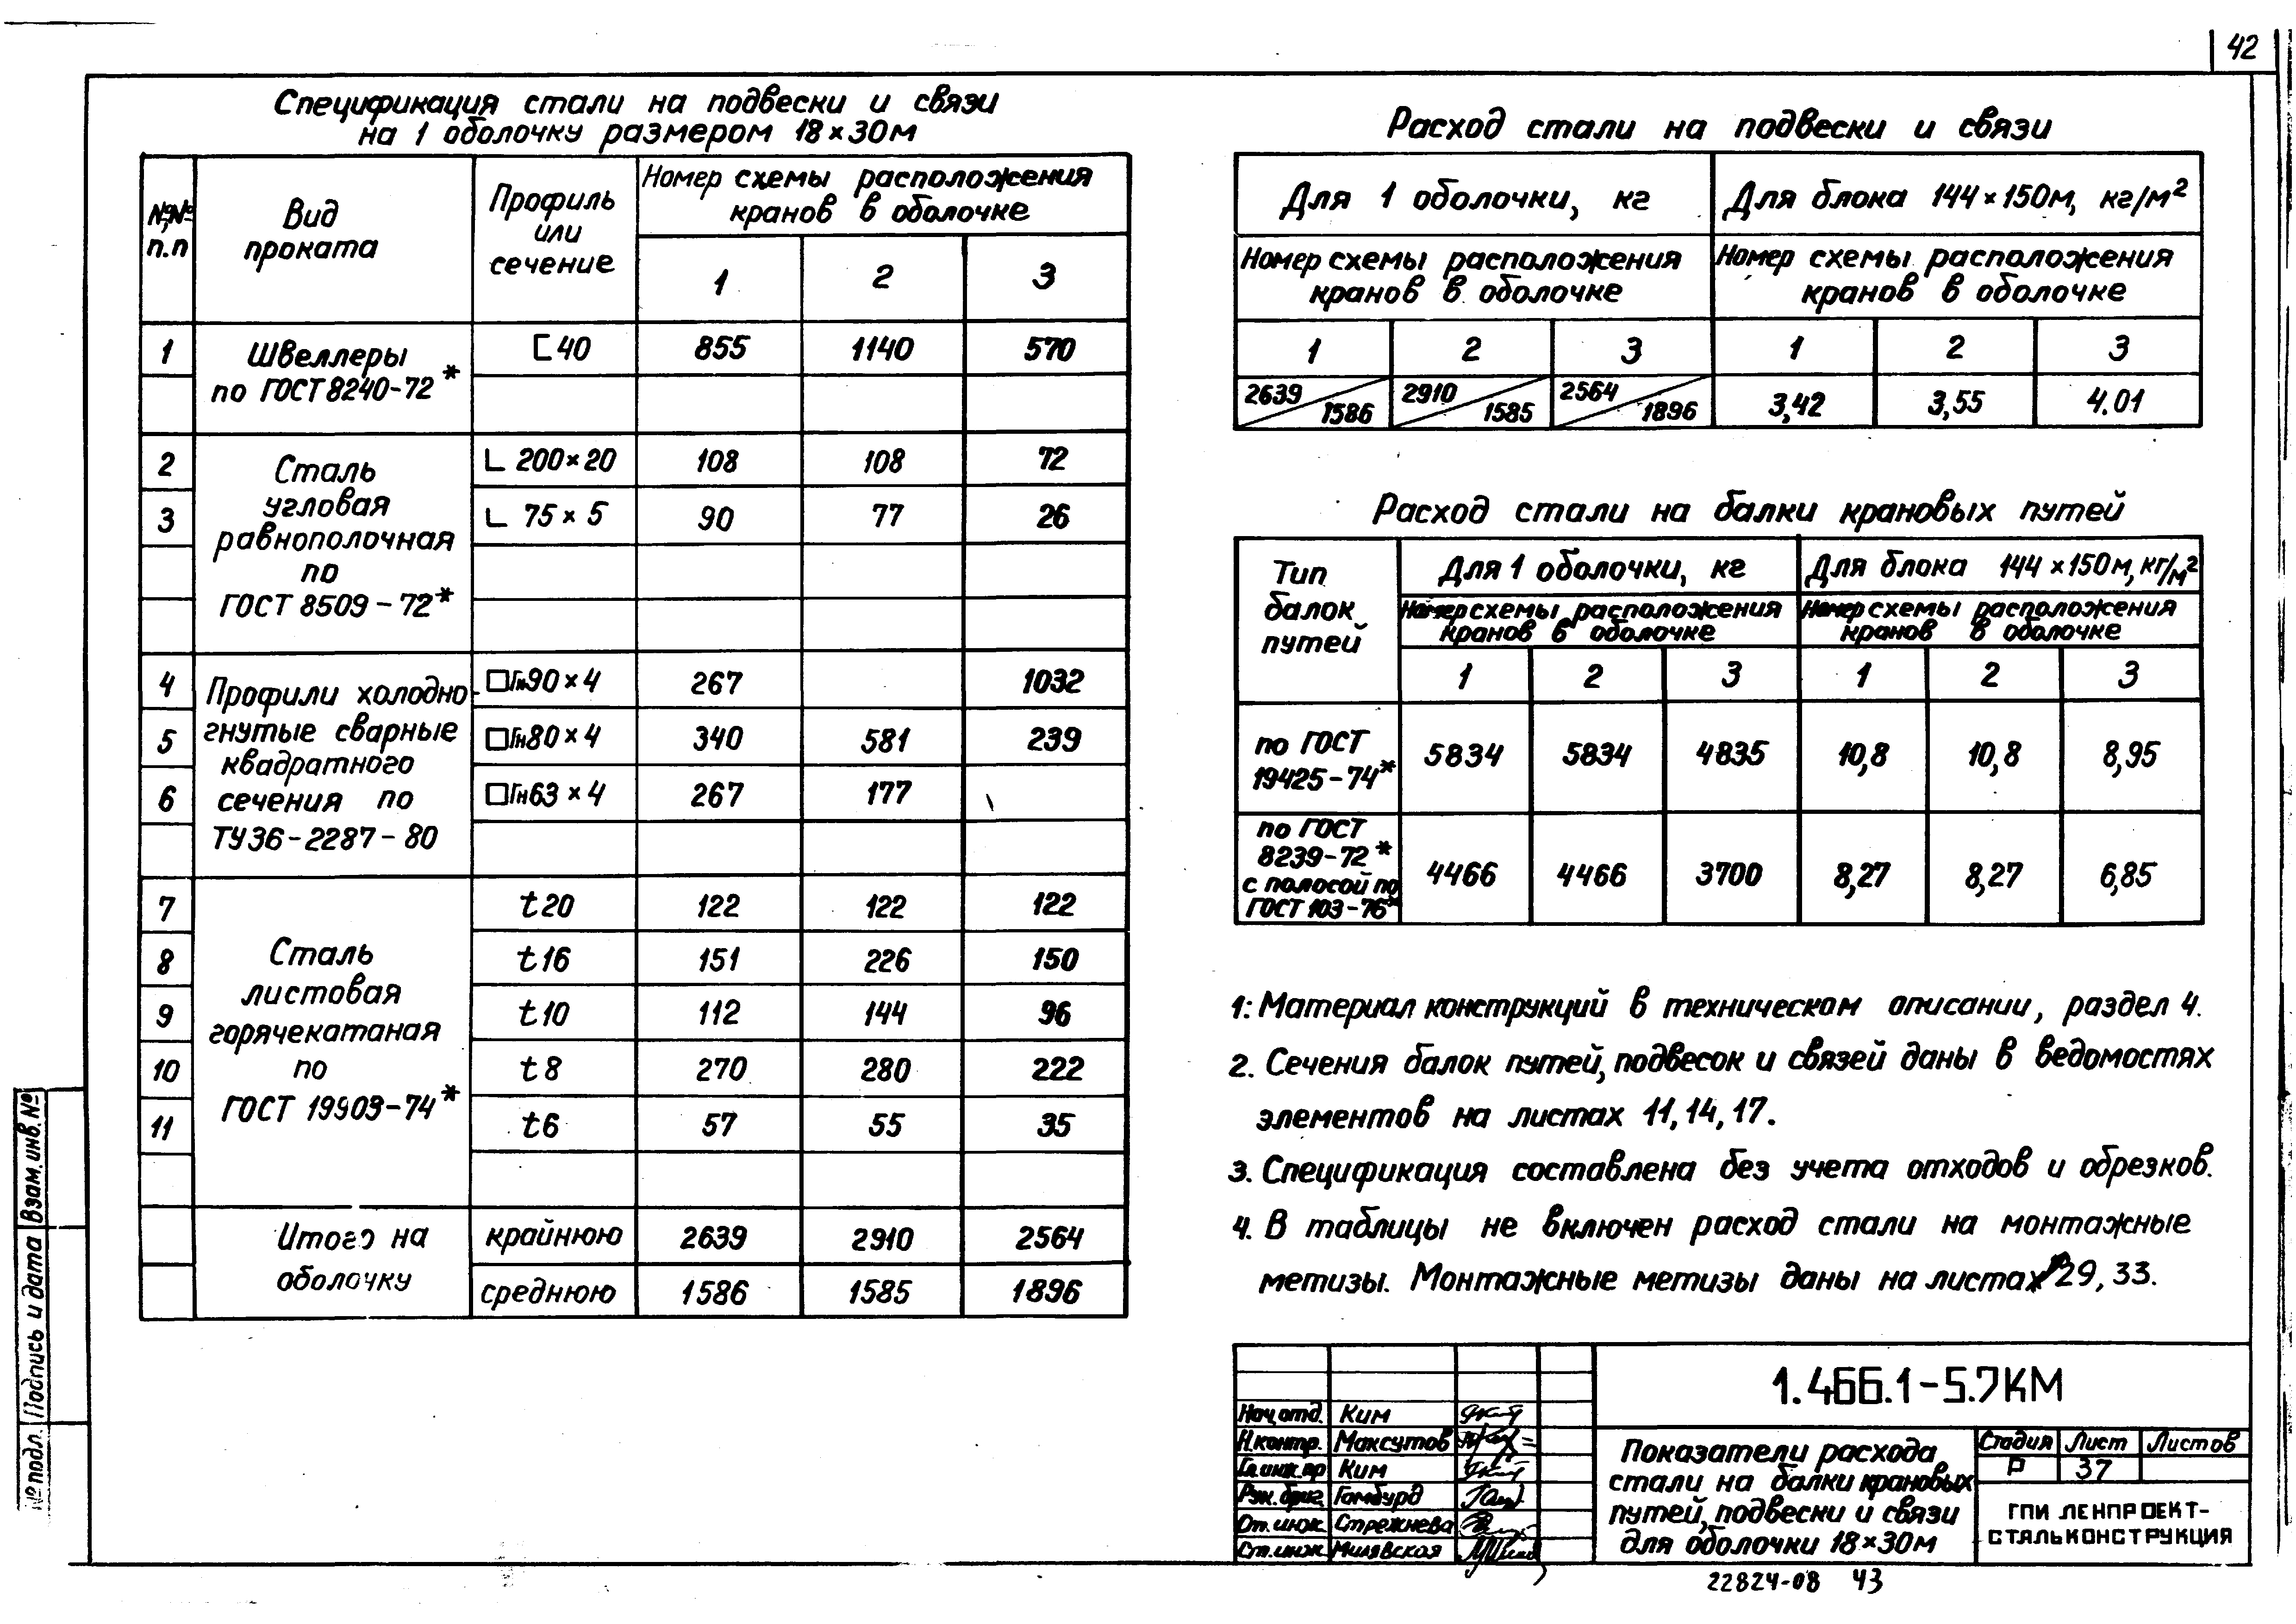 42
Спецификация стали на подвески и связи
на 1 оболочку размером 18×30м
№№ п.п
Вид проката
Профиль или сечение
Номер схемы расположения кранов в оболочке
1 2 3
1 Швеллеры по ГОСТ 8240-72* [40 855 1140 570
2 Сталь угловая равнополочная по ГОСТ 8509-72* ∟ 200×20 108 108 72
3 ∟ 75×5 90 77 26
4 Профили холодно- гнутые сварные квадратного сечения по ТУ36-2287-80 □Гн90×4 267 1032
5 □Гн80×4 340 581 239
6 □Гн63×4 267 177
7 Сталь листовая горячекатаная по ГОСТ 19903-74* t20 122 122 122
8 t16 151 226 150
9 t10 112 144 96
10 t8 270 280 222
11 t6 57 55 35
Итого на оболочку крайнюю 2639 2910 2564
среднюю 1586 1585 1896
Расход стали на подвески и связи
Для 1 оболочки, кг
Для блока 144×150м, кг/м²
Номер схемы расположения кранов в оболочке
Номер схемы расположения кранов в оболочке
1 2 3 1 2 3
2639/1586 2910/1585 2564/1896 3,42 3,55 4.01
Расход стали на балки крановых путей
Тип балок путей
Для 1 оболочки, кг
Для блока 144×150м, кг/м²
Номер схемы расположения кранов в оболочке
Номер схемы расположения кранов в оболочке
1 2 3 1 2 3
по ГОСТ 19425-74* 5834 5834 4835 10,8 10,8 8,95
по ГОСТ 8239-72* с полосой по ГОСТ 103-76* 4466 4466 3700 8,27 8,27 6,85
1. Материал конструкций в техническом описании, раздел 4.
2. Сечения балок путей, подвесок и связей даны в ведомостях
элементов на листах 11, 14, 17.
3. Спецификация составлена без учета отходов и обрезков.
4. В таблицы не включен расход стали на монтажные
метизы. Монтажные метизы даны на листах 29, 33.
1.466.1-5.7КМ
Нач.отд. Ким
Н.контр. Максутов
Гл.инж.пр Ким
Рук.бриг. Гомбурд
От.инж. Стрежнева
Ст.инж. Милявская
Показатели расхода
стали на балки крановых
путей, подвески и связи
для оболочки 18×30м
Стадия Лист Листов
Р 37
ГПИ ЛЕНПРОЕКТ-
СТАЛЬКОНСТРУКЦИЯ
22824-08 43
№ подл. Подпись и дата Взам.инв.№